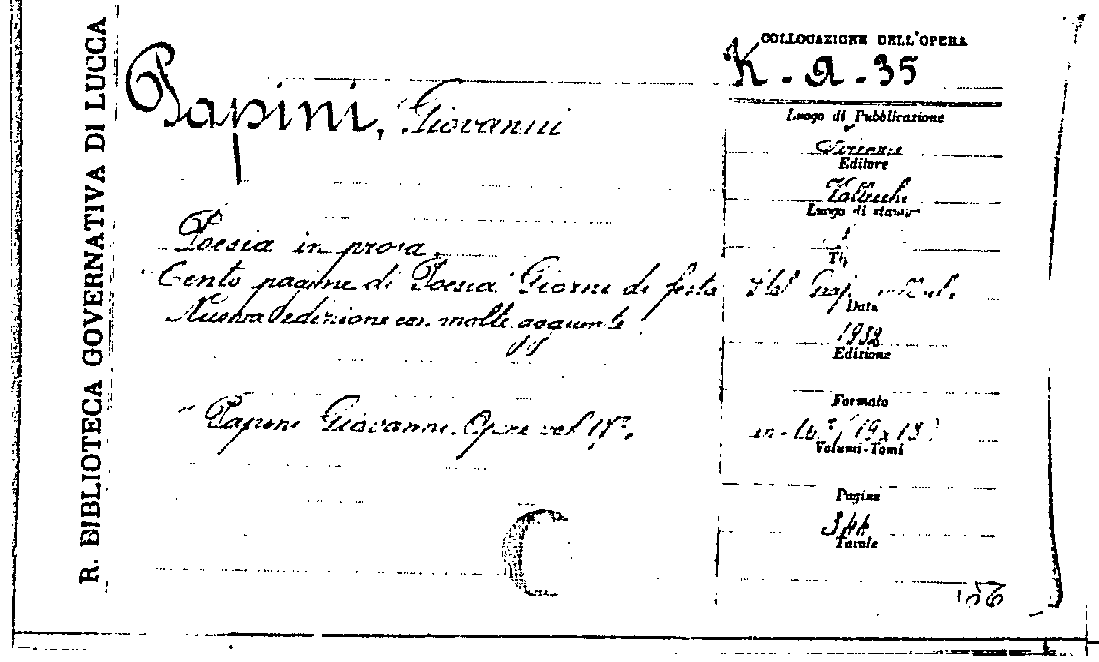 R. BIBLIOTECA GOVERNATIVA DI LUCCA
COLLOCAZIONE DELL'OPERA
K - a - 35
Papini, Giovanni
Luogo di Pubblicazione
Firenze
Editore
Vallecchi
Luogo di stampa
Poesia in prosa.
Cento pagine di Poesia Giorni di festa
Nuova edizione con molte aggiunte
Data
1932
Edizione
Formato
in-16° (19x13)
Volumi-Tomi
Papini Giovanni. Opere vol
Pagine
344
Tavole